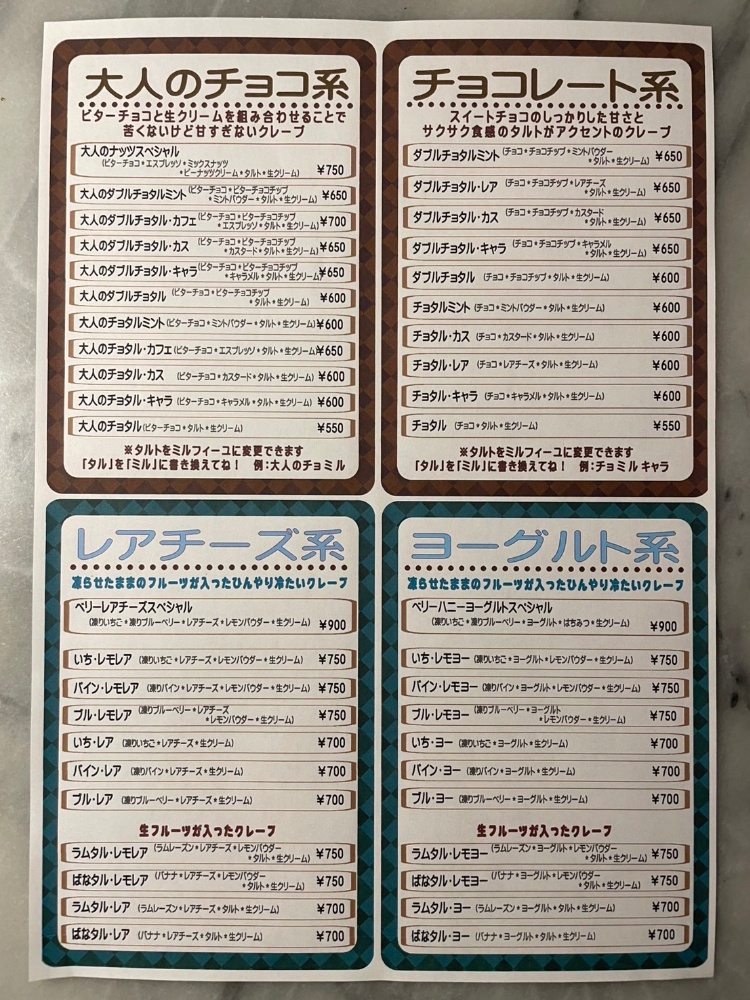 大人のチョコ系
ビターチョコと生クリームを組み合わせることで
苦くないけど甘すぎないクレープ
大人のナッツスペシャル
(ビターチョコ*エスプレッソ*ミックスナッツ
*ピーナッツクリーム*タルト*生クリーム) ¥750
大人のダブルチョタルミント (ビターチョコ*ビターチョコチップ
*ミントパウダー*タルト*生クリーム) ¥650
大人のダブルチョタル・カフェ (ビターチョコ*ビターチョコチップ
*エスプレッソ*タルト*生クリーム) ¥700
大人のダブルチョタル・カス (ビターチョコ*ビターチョコチップ
*カスタード*タルト*生クリーム) ¥650
大人のダブルチョタル・キャラ (ビターチョコ*ビターチョコチップ
*キャラメル*タルト*生クリーム) ¥650
大人のダブルチョタル (ビターチョコ*ビターチョコチップ
*タルト*生クリーム) ¥600
大人のチョタルミント (ビターチョコ*ミントパウダー*タルト*生クリーム) ¥600
大人のチョタル・カフェ (ビターチョコ*エスプレッソ*タルト*生クリーム) ¥650
大人のチョタル・カス (ビターチョコ*カスタード*タルト*生クリーム) ¥600
大人のチョタル・キャラ (ビターチョコ*キャラメル*タルト*生クリーム) ¥600
大人のチョタル (ビターチョコ*タルト*生クリーム) ¥550
※タルトをミルフィーユに変更できます
「タル」を「ミル」に書き換えてね! 例:大人のチョミル
チョコレート系
スイートチョコのしっかりした甘さと
サクサク食感のタルトがアクセントのクレープ
ダブルチョタルミント (チョコ*チョコチップ*ミントパウダー
*タルト*生クリーム) ¥650
ダブルチョタル・レア (チョコ*チョコチップ*レアチーズ
*タルト*生クリーム) ¥650
ダブルチョタル・カス (チョコ*チョコチップ*カスタード
*タルト*生クリーム) ¥650
ダブルチョタル・キャラ (チョコ*チョコチップ*キャラメル
*タルト*生クリーム) ¥650
ダブルチョタル (チョコ*チョコチップ*タルト*生クリーム) ¥600
チョタルミント (チョコ*ミントパウダー*タルト*生クリーム) ¥600
チョタル・カス (チョコ*カスタード*タルト*生クリーム) ¥600
チョタル・レア (チョコ*レアチーズ*タルト*生クリーム) ¥600
チョタル・キャラ (チョコ*キャラメル*タルト*生クリーム) ¥600
チョタル (チョコ*タルト*生クリーム) ¥550
※タルトをミルフィーユに変更できます
「タル」を「ミル」に書き換えてね! 例:チョミル キャラ
レアチーズ系
凍らせたままのフルーツが入ったひんやり冷たいクレープ
ベリーレアチーズスペシャル
(凍りいちご*凍りブルーベリー*レアチーズ*レモンパウダー*生クリーム) ¥900
いち・レモレア (凍りいちご*レアチーズ*レモンパウダー*生クリーム) ¥750
パイン・レモレア (凍りパイン*レアチーズ*レモンパウダー*生クリーム) ¥750
ブル・レモレア (凍りブルーベリー*レアチーズ
*レモンパウダー*生クリーム) ¥750
いち・レア (凍りいちご*レアチーズ*生クリーム) ¥700
パイン・レア (凍りパイン*レアチーズ*生クリーム) ¥700
ブル・レア (凍りブルーベリー*レアチーズ*生クリーム) ¥700
生フルーツが入ったクレープ
ラムタル・レモレア (ラムレーズン*レアチーズ*レモンパウダー
*タルト*生クリーム) ¥750
ばなタル・レモレア (バナナ*レアチーズ*レモンパウダー
*タルト*生クリーム) ¥750
ラムタル・レア (ラムレーズン*レアチーズ*タルト*生クリーム) ¥700
ばなタル・レア (バナナ*レアチーズ*タルト*生クリーム) ¥700
ヨーグルト系
凍らせたままのフルーツが入ったひんやり冷たいクレープ
ベリーハニーヨーグルトスペシャル
(凍りいちご*凍りブルーベリー*ヨーグルト*はちみつ*生クリーム) ¥900
いち・レモヨー (凍りいちご*ヨーグルト*レモンパウダー*生クリーム) ¥750
パイン・レモヨー (凍りパイン*ヨーグルト*レモンパウダー*生クリーム) ¥750
ブル・レモヨー (凍りブルーベリー*ヨーグルト
*レモンパウダー*生クリーム) ¥750
いち・ヨー (凍りいちご*ヨーグルト*生クリーム) ¥700
パイン・ヨー (凍りパイン*ヨーグルト*生クリーム) ¥700
ブル・ヨー (凍りブルーベリー*ヨーグルト*生クリーム) ¥700
生フルーツが入ったクレープ
ラムタル・レモヨー (ラムレーズン*ヨーグルト*レモンパウダー
*タルト*生クリーム) ¥750
ばなタル・レモヨー (バナナ*ヨーグルト*レモンパウダー
*タルト*生クリーム) ¥750
ラムタル・ヨー (ラムレーズン*ヨーグルト*タルト*生クリーム) ¥700
ばなタル・ヨー (バナナ*ヨーグルト*タルト*生クリーム) ¥700